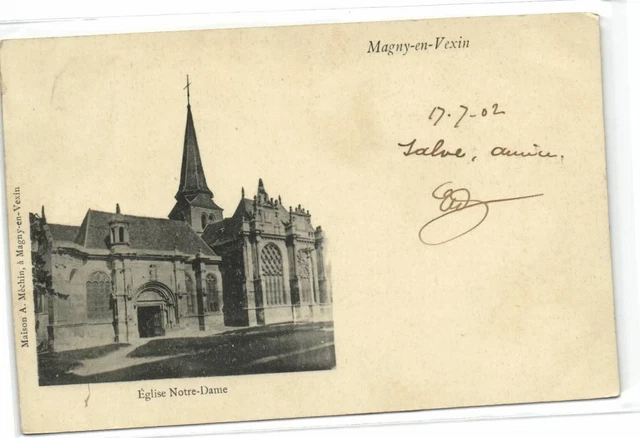 Magny-en-Vexin
17-7-02
Salve, amice.
Maison A. Méchin, à Magny-en-Vexin
Église Notre-Dame